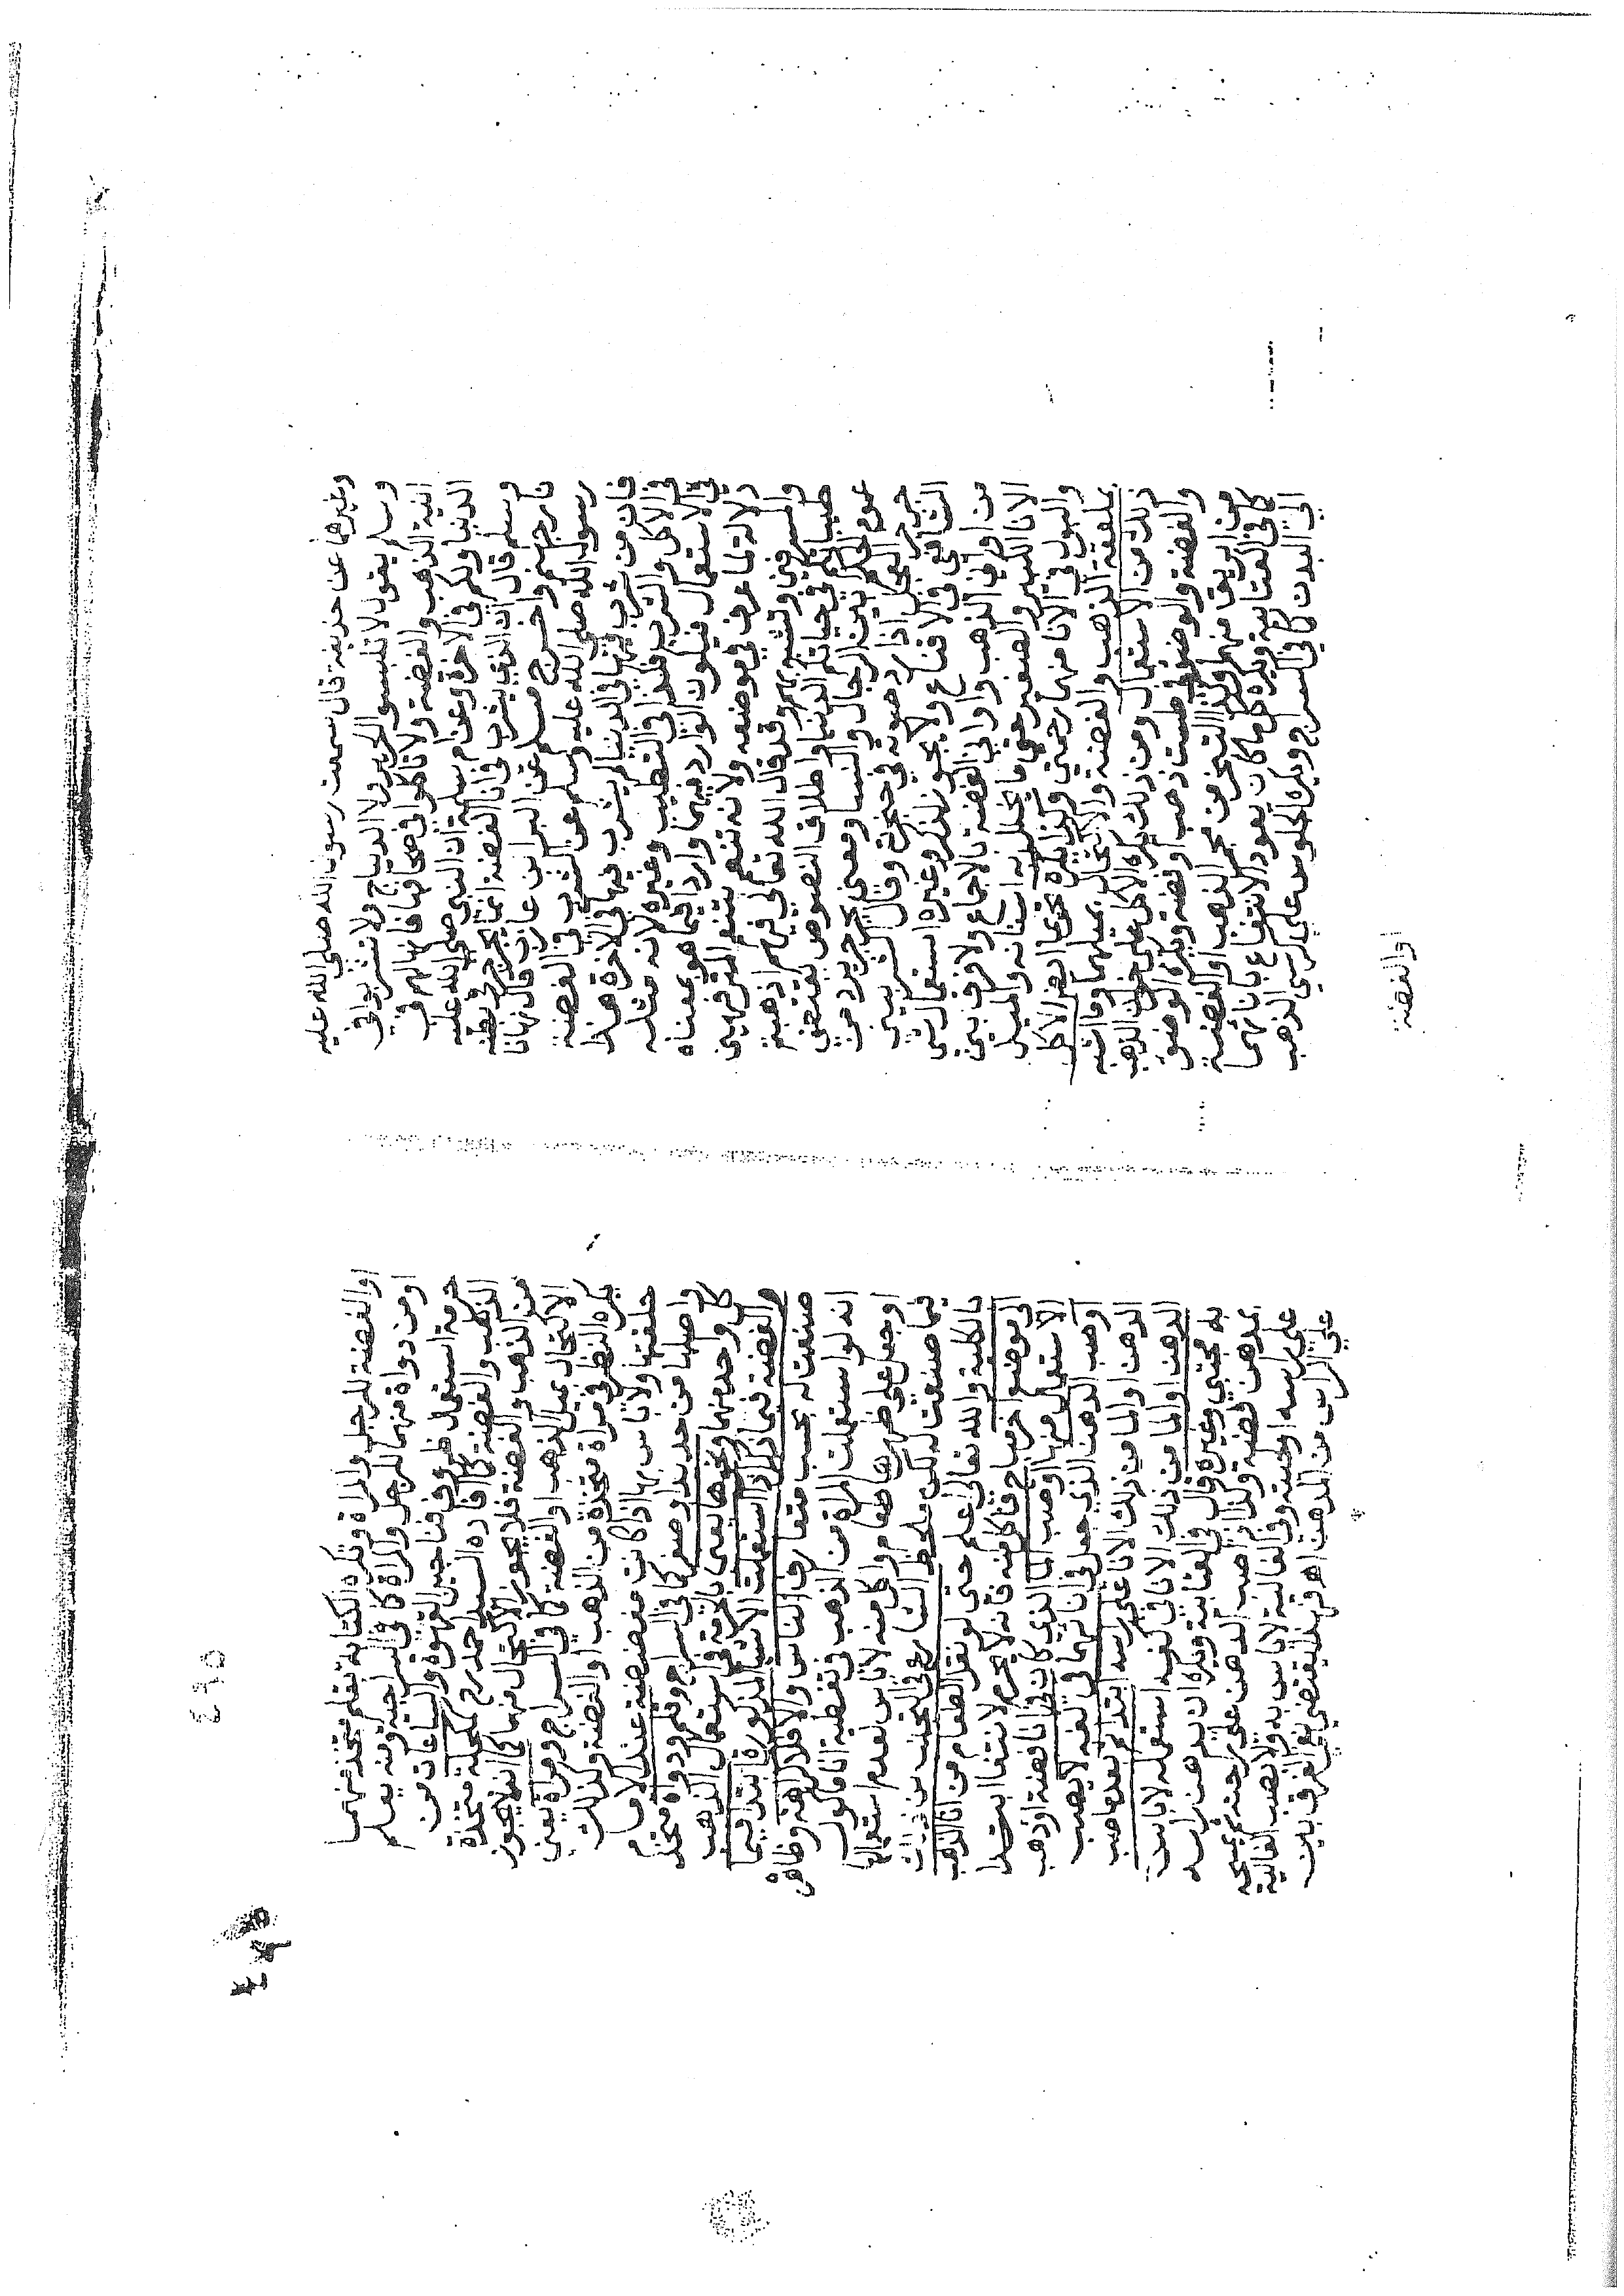 وغيرهما عن حذيفة قال سمعت رسول الله صلى الله عليه
وسلم يقول لا تلبسوا الحرير ولا الديباج ولا تشربوا في
آنية الذهب والفضة ولا تأكلوا في صحافها فإنها لهم في
الدنيا ولكم في الآخرة وعن أم سلمة ان النبي صلى الله عليه
وسلم قال ان الذي يشرب في انا الفضة انما يجرجر في بطنه
نار جهنم واخرج مسلم عن البرا بن عازب قال نهانا
رسول الله صلى الله عليه وسلم عن الشرب في الفضة
فان من شرب فيها في الدنيا لم يشرب فيها في الاخرة هذا
في الاكل والشرب فلذا في التطيب وغيره لانه مثله
في الاستعمال فيكون الوارد فيهما واردا فيما هو بمعناه
دلالة لما عرف في موضعه ولانه تنعم بتنعم المترفهين
والمسرفين وتشبه بهم وقد قال الله تعالى فيهم اذهبتم
طيباتكم في حياتكم الدنيا واطلاق النصوص يقتضي
عموم الحكم بين الرجال والنسا ومعنى يجرجر يردد من
جرجر الفحل اذا ردد صوته في حنجرته وقال الشربيني
الشافعي في الاقناع ولا يجوز لذكر وغيره استعمال شي
من اواني الذهب واواني الفضة بالاجماع ولا فرق بين
الانا الكبير والصغير حتى ما يخلل به اسنانه والميل
والبول في الانا منهما وكذا يكره تحريما ايضا الاكل
بملعقة الذهب والفضة والاكتحال بميلهما وما اشبه
ذلك من الاستعمال ومن ذلك يكره الاكل على خوان الذهب
والفضة والوضوء في طست ذهب او فضة ويكره الوضوء
من ابريق منهما وكذا التبخر من مجمر الذهب او الفضة
كما في العتابية ويكره كل ما كان يعود الانتفاع بانائهما
الى البدن كما في السراج ويكره الجلوس على كرسي الذهب
او الفضة
٤٩٥
او الفضة للرجل والمراة وتكره الكتابة بقلم متخذ منهما
او من دواة منهما للرجل والمراة كما في السراجية ومنه يعلم
حرمة استعمال ظروف فناجين القهوة والساعات من
الذهب والفضة كما افاده السيد احمد رح مكحلة متخذة
من الذهب والفضة فلا يجوز الاكتحال منها كما انه لا يجوز
الاكتحال بميل الذهب او الفضة كما في السراج ومراة يعني
يكره النظر في مراة متخذة من الذهب او الفضة وكذلك
حلقتها ولا باس بها اذا كانت مفضضة عند الامام
واصلها من حديد او صفر كما في السراج وقلم ودواة متخذ
كل واحد منهما ونحوها يعني بالحرمة في استعمال الذهب
والفضة فيما ذكر اذا استعملت الاشيا المذكورة ابتدا فيما
صنعت له بحسب متعارف الناس والا فلا كراهة وظاهره
انه لو استعملت المراة من الذهب في تغطية انا ماكول
او جعل على ظهرها طعام واكل منه لا باس لعدم استعمالها
فيما صنعت له لكن ملحظ الشارع في التجنب عن ذلك
بالكلية والله تعالى اعلم حتى لو نقل الطعام من انا الذهب
الى موضع اخر مباح فاكل منه فانه لا يحرم لانتفا ابتدا
الاستعمال منها او صب الما الذي كان في انا فضة او ذهب
او صب الدهن الذي جعل في انائهما في كفه لا يصب
الدهن او الما من ذلك الانا على راسه ابتدا ثم بعد ما صب
الدهن او الما من ذلك الانا في كفه استعمله لا باس
به مجتبى وغيره قال في العتابية ويكره ان يدهن راسه
بمدهن فضة وكذا ان صب الدهن على راحته ثم يمسحه
على راسه او لحيته وفي الغالية لا باس به ولا يصب الغالية
على الراس من المدهن اهـ فهذا يقتضي نفي الفرق بين